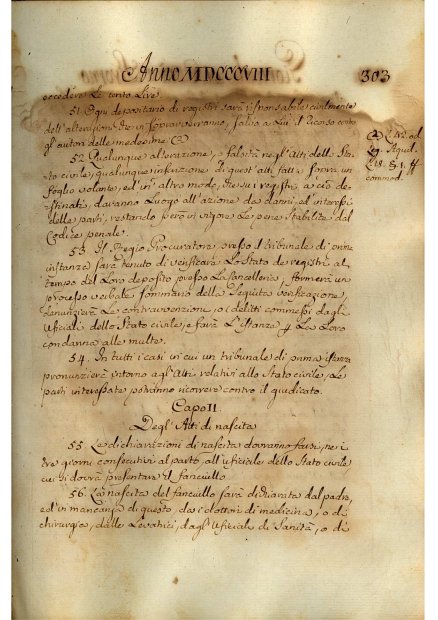 Anno MDCCCVIII
303
eccedere Le cento Lire.
51. Ogni depositario di registri sarà risponsabile civilmente
dell'alterazioni che vi sopravverranno, salvo a Lui il ricorso contro
gli autori delle medesime
52. Qualunque alterazione, o falsità negl'Atti dello Sta-
to civile, qualunque inscrizione di quest'atti fatta sopra un
foglio volante, ed in altro modo, che sui registri a ciò de-
stinati, daranno Luogo all'azione de danni, ed interessi
delle parti, restando però in vigore Le pene stabilite dal
Codice penale.
53. Il Regio Procuratore presso il tribunale di prima
instanza sarà tenuto di verificare Lo stato de registri al
tempo del Loro deposito presso La Cancelleria; formerà un
processo verbale sommario della seguita verificazione,
denunzierà Le contravenzioni, o i delitti commessi dagli
Ufficiali dello Stato civile, e farà L'istanza La Loro
condanna alle multe.
54. In tutti i casi in cui un tribunale di prima istanza
pronunzierà intorno agl'Atti relativi allo Stato civile, Le
parti interessate potranno ricorrere contro il giudicato.
Capo II.
Degl'Atti di nascita
55. Le dichiarazioni di nascita dovranno farsi, nei
tre giorni consecutivi al parto, all'uficiale dello Stato civile
cui si dovrà presentare il fanciullo.
56. La nascita del fanciullo sarà dichiarata dal padre,
ed in mancanza di questo, da i dottori di medicina, o di
chirurgia, dalle Levatrici, dagl'Ufficiali di Sanità, o di
Leg. Aquil.
commod.